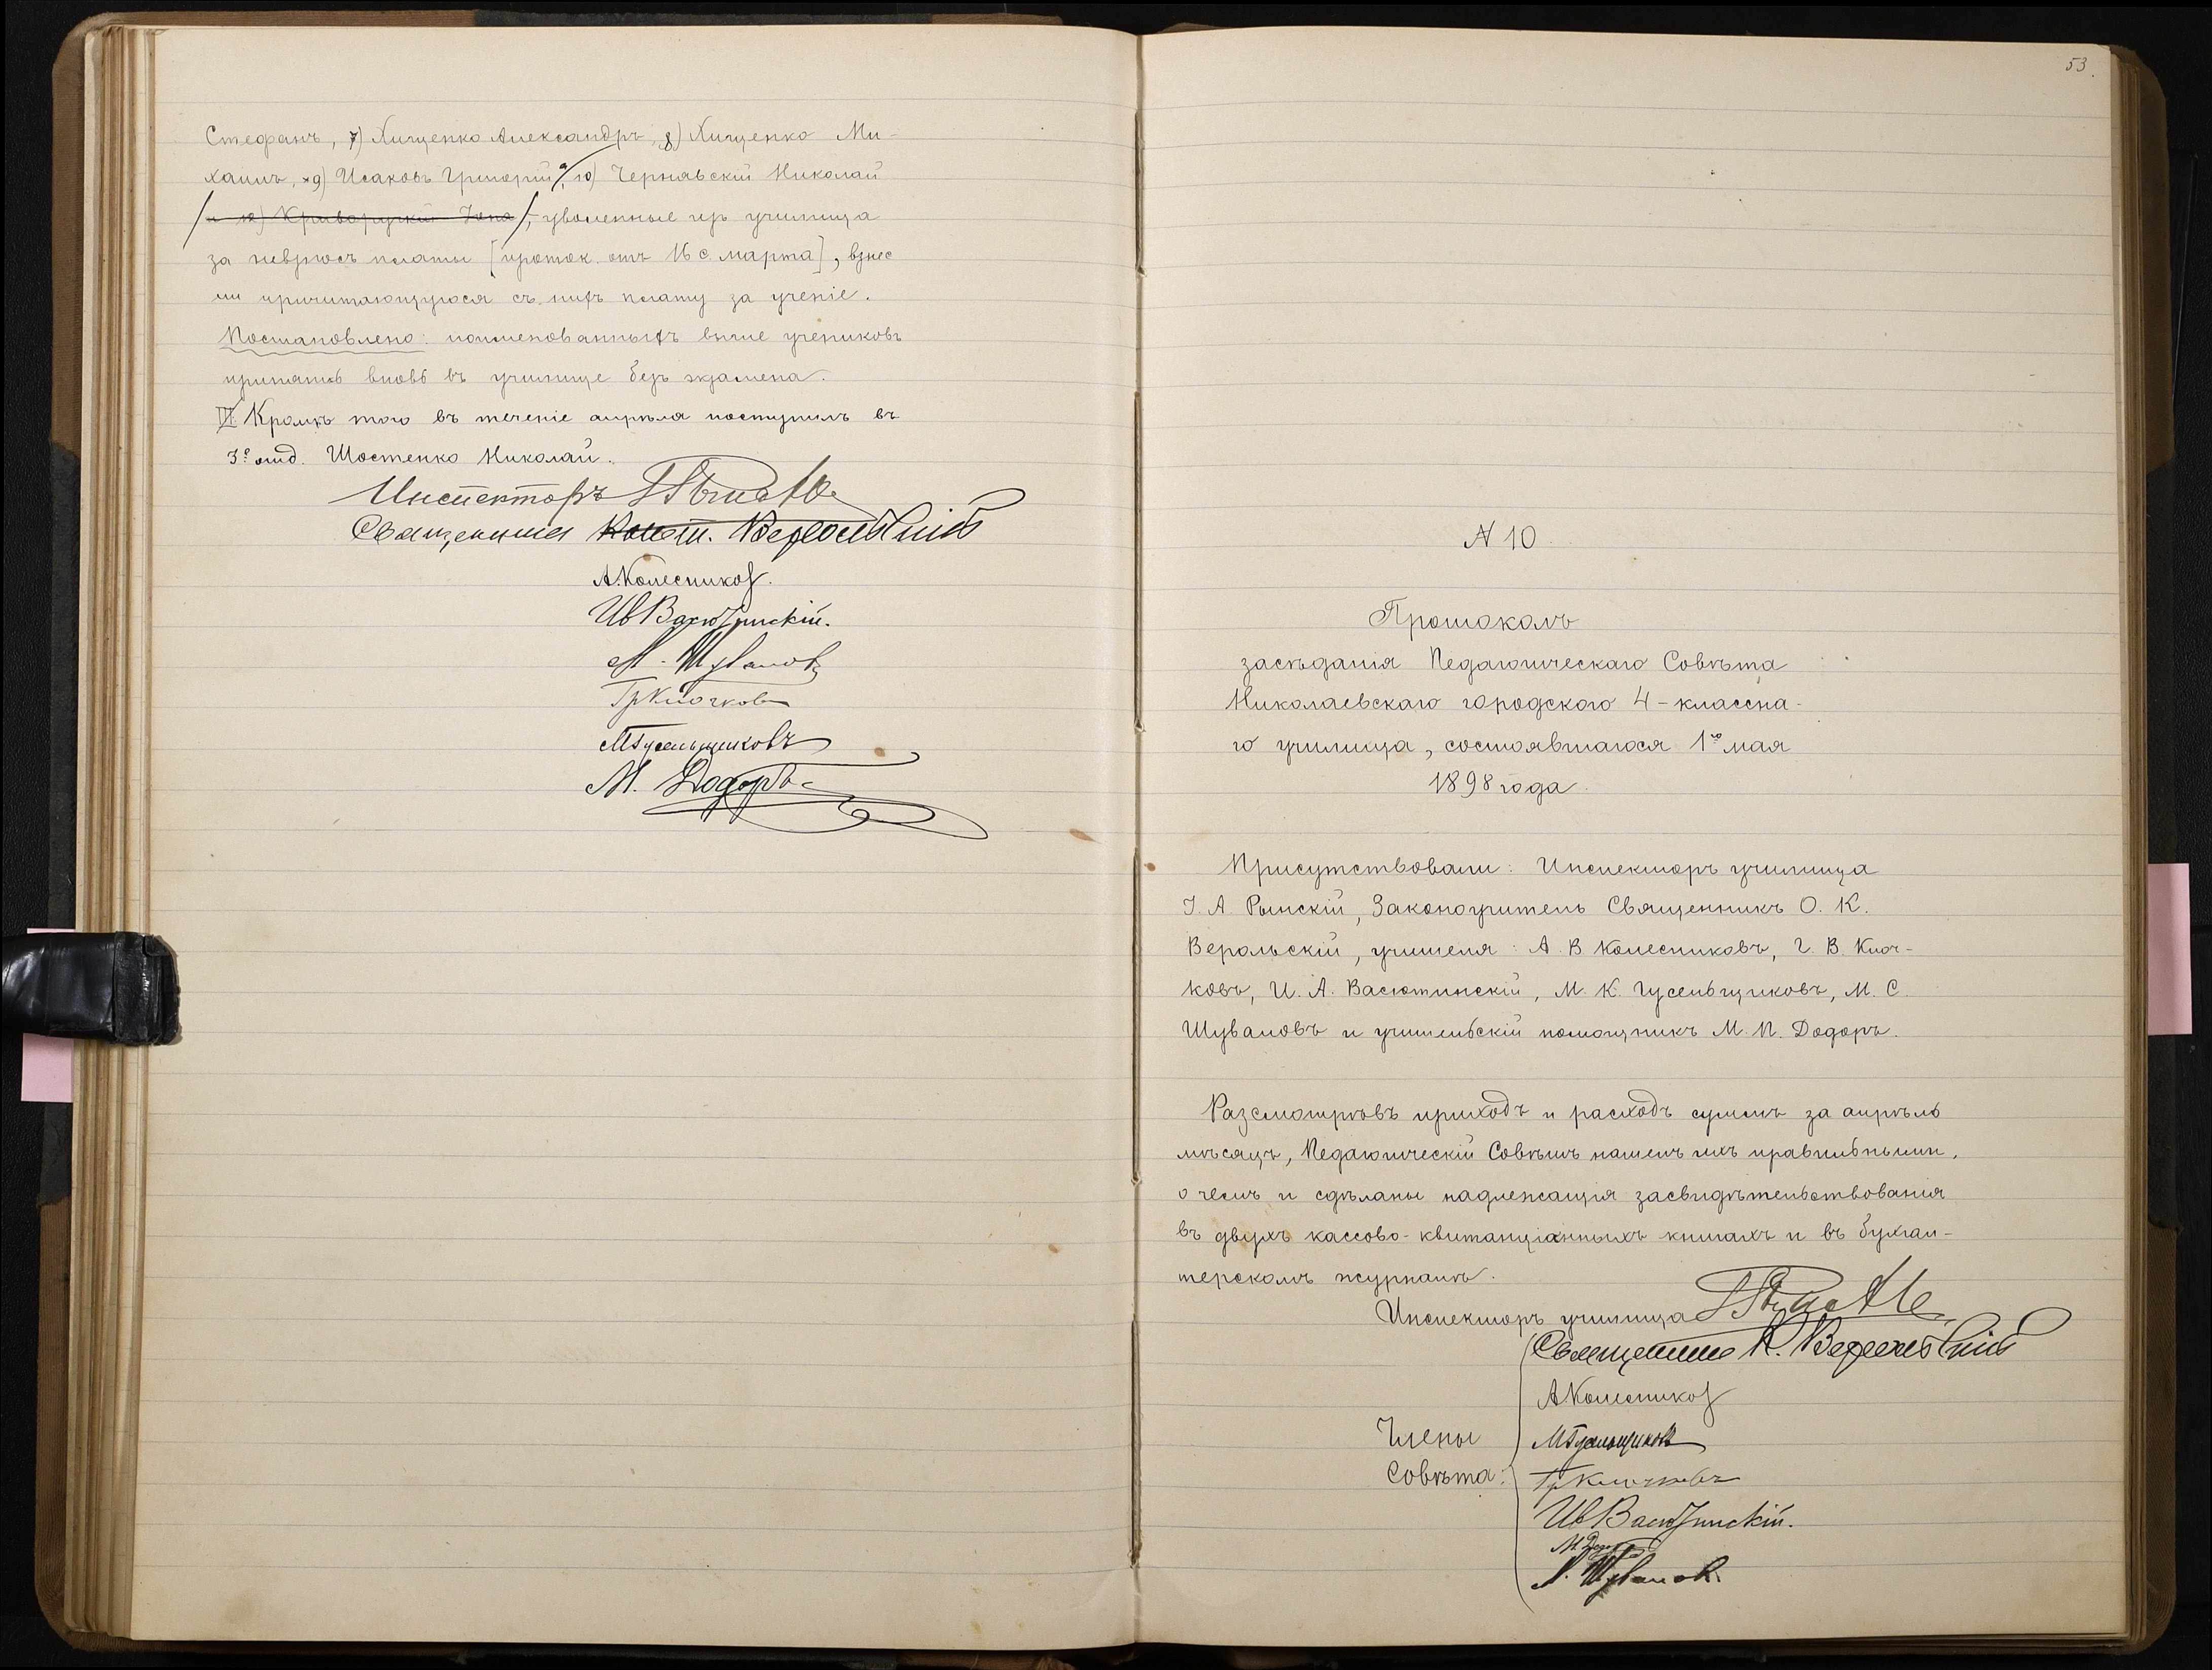 Стефанъ, 7) Хищенко Александръ, 8) Хищенко Ми-
хаилъ, 9) Исаковъ Григорій, 10) Чернявскій Николай
и 10) Криворуцкій Іона, уволенные изъ училища
за невзносъ платы [проток. отъ 16 с. марта], взнес
ли причитающуюся съ нихъ плату за ученіе.
Постановлено: поименованныхъ выше учениковъ
принять вновь въ училище безъ экзамена.
VI Кромѣ того въ теченіе апрѣля поступилъ въ
3е отд. Шостенко Николай.
Инспекторъ
Священникъ Конст. Верольскій
А. Колесников.
Ив Васютинскій.
М. Шуваловъ
Гр Клочковъ
М Гусельщиковъ
М. Додоръ
53.
N 10
Протоколъ
засѣданія Педагогическаго Совѣта
Николаевскаго городского 4-классна-
го училища, состоявшагося 1го мая
1898 года.
Присутствовали: Инспекторъ училища
І. А. Рынскій, Законоучитель Священникъ О. К.
Верольскій, учителя: А. В. Колесниковъ, Г. В. Клоч-
ковъ, И. А. Васютинскій, М. К. Гусельщиковъ, М. С.
Шуваловъ и учительскій помощникъ М. П. Додоръ.
Разсмотрѣвъ приходъ и расходъ суммъ за апрѣль
мѣсяцъ, Педагогическій Совѣтъ нашелъ ихъ правильными,
о чемъ и сдѣланы надлежащія засвидѣтельствованія
въ двухъ кассово-квитанціанныхъ книгахъ и въ бухгал-
терскомъ журналѣ.
Инспекторъ училища
Священникъ К. Верольскій
А Колесников
Члены
М Гусельщиковъ
Совѣта:
Гр Клочковъ
Ив Васютинскій.
М Додоръ
М. Шувалов.